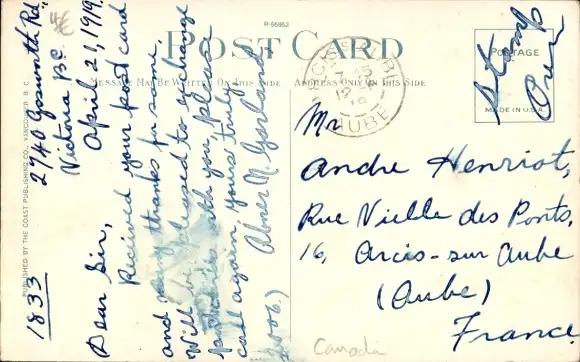 R-55852
POST CARD
MESSAGE MAY BE WRITTEN ON THIS SIDE
ADDRESS ONLY ON THIS SIDE
POSTAGE
MADE IN U.S.A.
Stamp
Over
PUBLISHED BY THE COAST PUBLISHING CO., VANCOUVER, B. C.
1833
2740 Gosworth Rd.
Victoria B.C.
April 21, 1919.
Dear Sir,
Received your post card
and many thanks for same.
Will be pleased to exchange
with you, please
call again, yours truly
Abner N. Gorland.
2006.)
ARCIS-S-AUBE
AUBE
Mr
Andre Henriot,
Rue Vielle des Ponts,
16, Arcis-sur Aube
(Aube)
France.
Canada